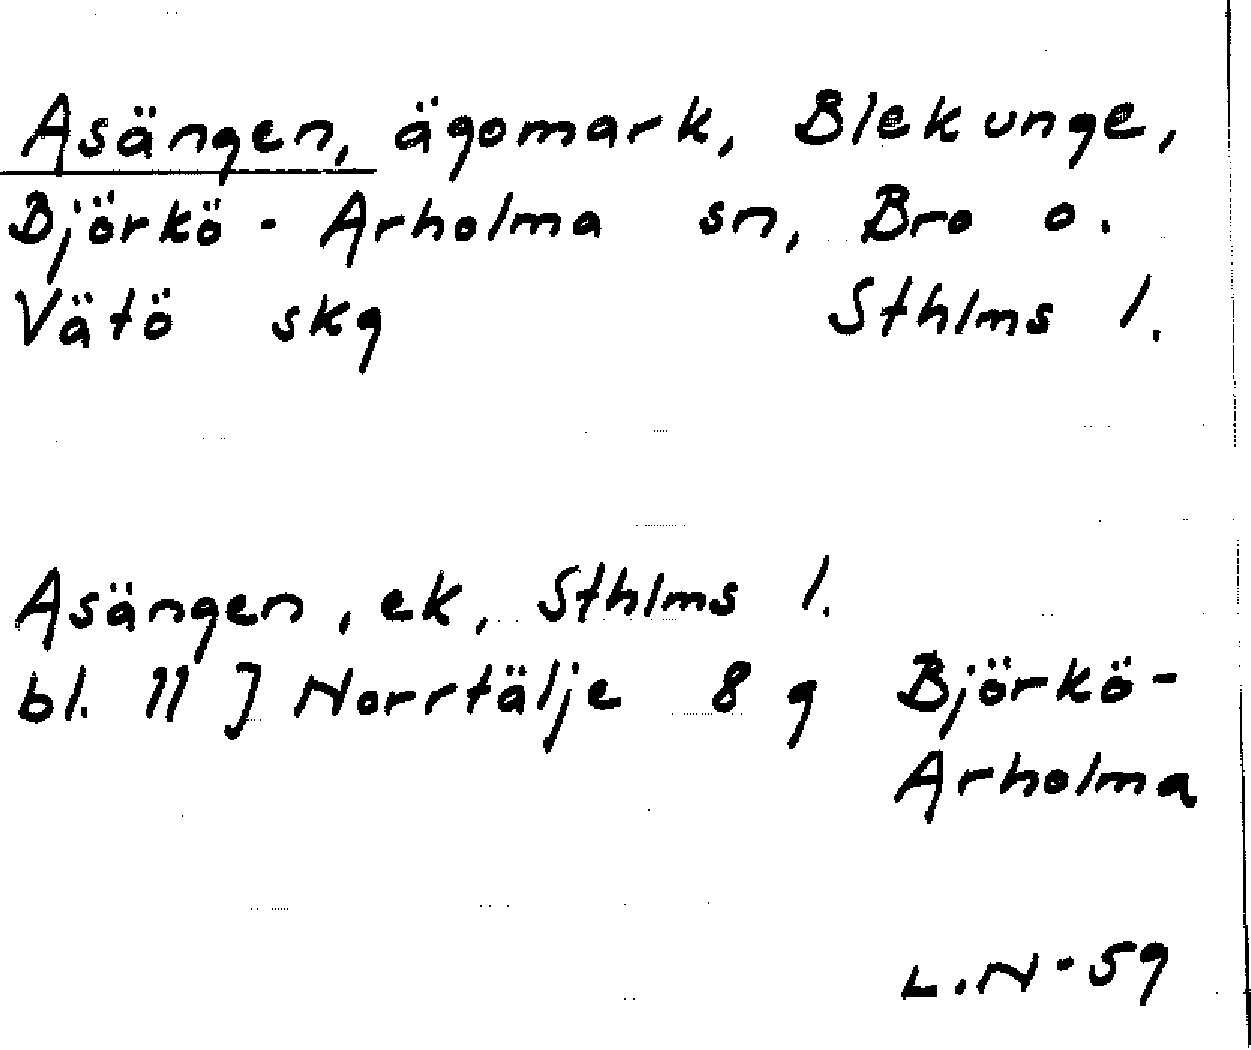 Asängen, ägomark, Blekunge,
Björkö-Arholma sn, Bro o.
Vätö skg Sthlms l.
Asängen, ek, Sthlms l.
bl. 11 J Norrtälje 8 g Björkö-
Arholma
L.N-59